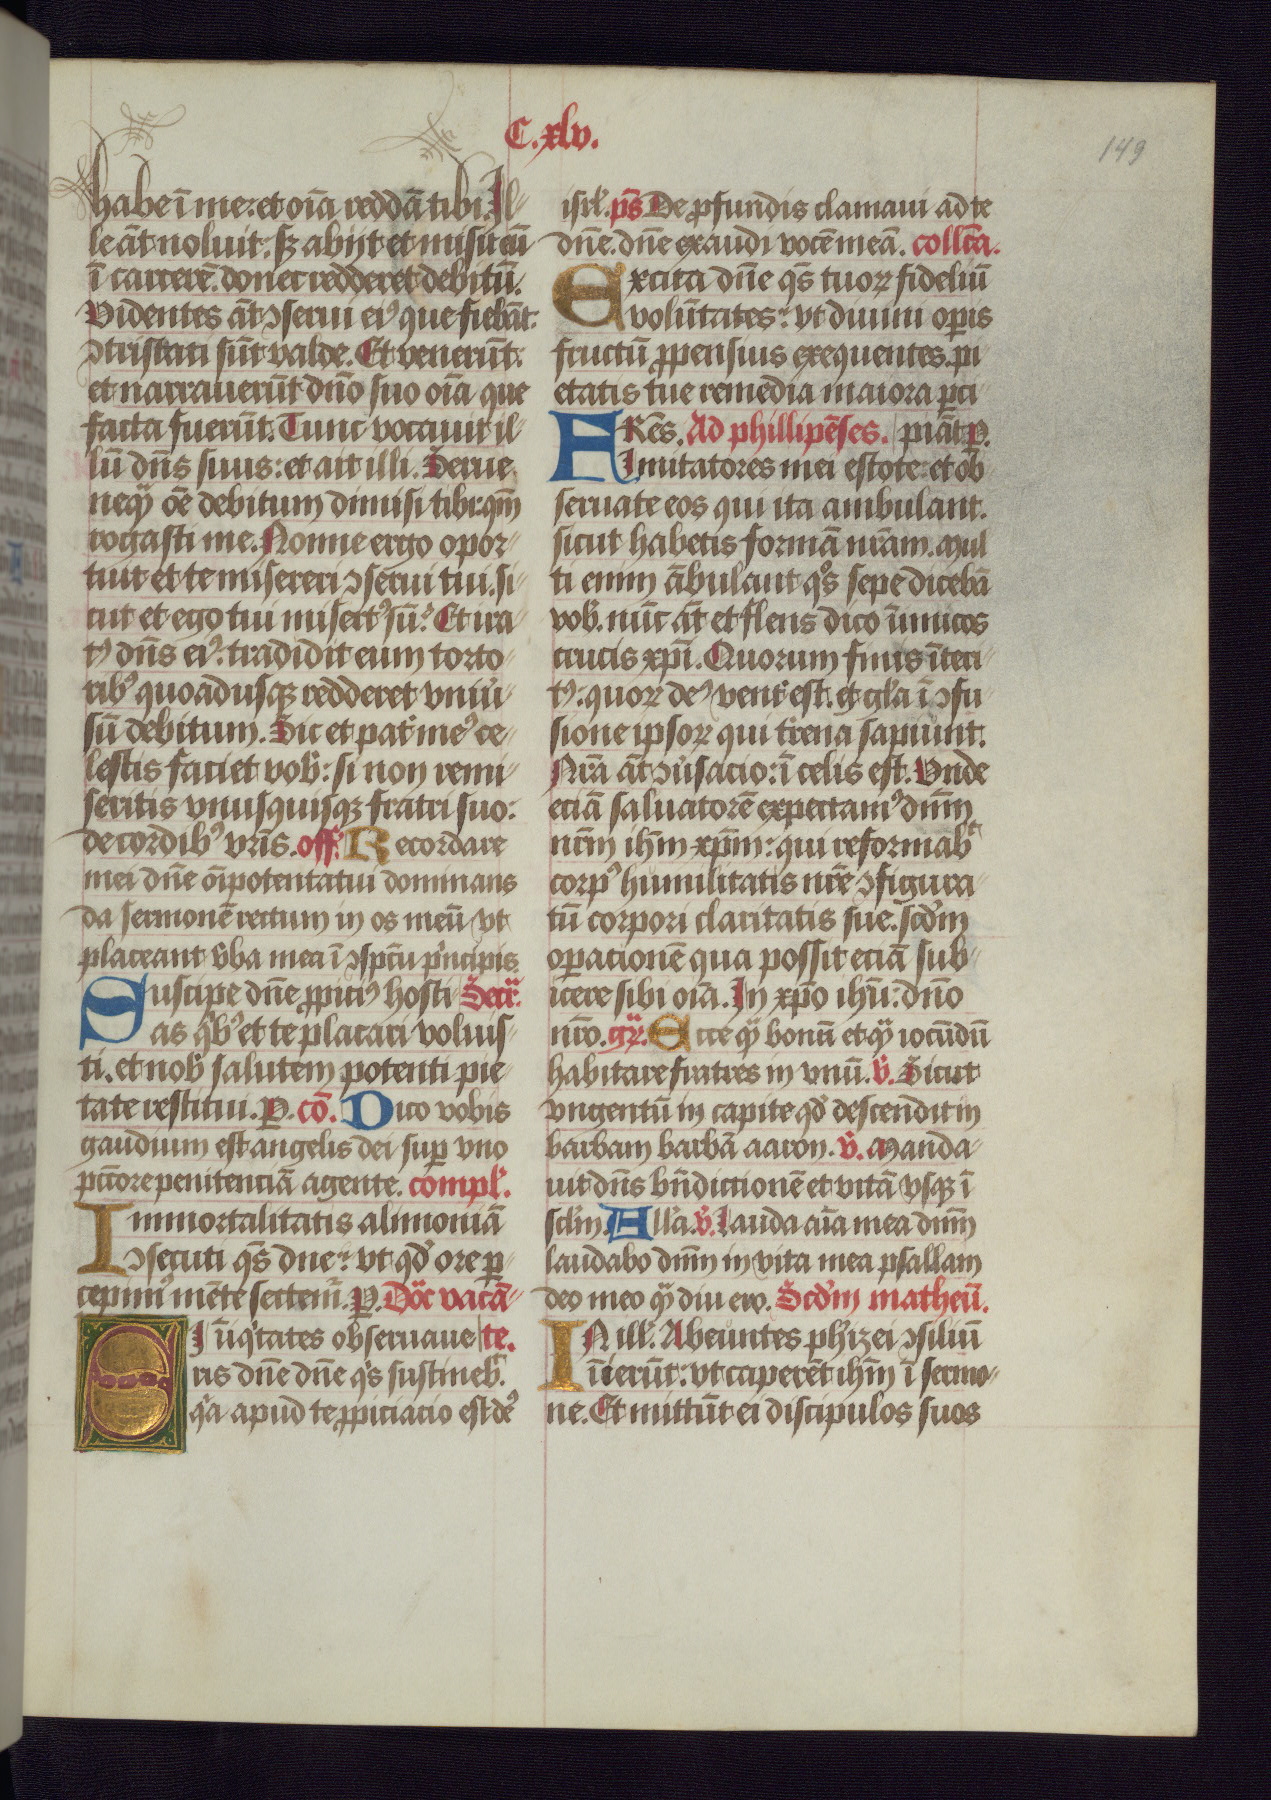 C. xlv.
149
habe ī me: et oīa reddā tibi. Il-
le āt noluit: sꝫ abijt et misit eū
ī carcerē. donec redderet debitū.
Videntes āt ꝯserui eiꝰ que fiebāt:
ꝯtristati sūt valde. Et venerūt:
et narrauerūt dn̄o suo oīa que
facta fuerūt. Tunc vocauit il-
lū dn̄s suus: et ait illi. Serue
neq̄ȝ oē debitum dimisi tibi: qm̄
rogasti me. Nonne ergo opor-
tuit et te misereri ꝯserui tui. si-
cut et ego tui misertꝰ sū? Et ira-
tꝰ dn̄s eiꝰ: tradidit eum torto-
ribꝰ quoadusqꝫ redderet vniū-
sū debitum. Sic et pat̄ meꝰ ce-
lestis faciet vob̄: si non remi-
seritis vnusquisqꝫ fratri suo:
de cordibꝰ vr̄is. off̄. Recordare
mei dn̄e oīpotentatui dominans
da sermonē rectum in os meū vt
placeant v̄ba mea ī ꝯspc̄tu pͥncipis
Suscipe dn̄e ꝓpitiꝰ hosti- Secr̄.
as qͥbꝰ et te placari voluis-
ti. et nob̄ salutem potenti pie-
tate restitui. P. cō. Dico vobis
gaudium est angelis dei suꝑ vno
pcc̄ore penitenciā agente. compl̄.
Immortalitatis alimoniā
ꝯsecuti qs̄ dn̄e: vt qd̄ ore ꝑ-
cepimꝰ mēte sectem̄. P. Doīc vacā-
SI īiqͥtates obseruaue- te.
ris dn̄e dn̄e qͥs sustineb̄.
qͥa apud te ꝓpiciacio est deꝰ
isrl̄. ps̄ De ꝓfundis clamaui ad te
dn̄e. dn̄e exaudi vocē meā. collc̄a.
Excita dn̄e qs̄ tuoꝝ fideliū
volūtates: vt diuini oꝑis
fructū ꝓpensius exequentes. pi-
etatis tue remedia maiora ꝑci-
FRēs. Ad phillipēses. piāt P.
Imitatores mei estote: et ob-
seruate eos qui ita ambulant.
sicut habetis formā nr̄am. Mul-
ti enim ābulant qͦs sepe dicebā
vob̄. nūc āt et flens dico īimicos
crucis xp̄i. Quorum finis īteri-
tꝰ: quoꝝ deꝰ vent̄ est. et gl̄a ī ꝯfu-
sione ipsoꝝ qui t̄rena sapiunt.
Nr̄a āt ꝯūsacio: ī celis est. Vnde
eciā saluatorē expectamꝰ dn̄m
nr̄m ih̄m xp̄m: qui reformabᵗ
corpꝰ humilitatis nr̄e ꝯfigura-
tū corpori claritatis sue. scd̄m
oꝑationē qua possit eciā sub-
icere sibi oīa. In xp̄o ih̄u: dn̄o
nr̄o. gr̄. Ecce qᷓ bonū et qᷓ iocūdū
habitare fratres in vnū. v̄. Sicut
vngentū in capite qd̄ descendit in
barbam barbā aaron. v̄. Manda-
uit dn̄s bn̄dictionē et vitā vsqꝫ ī
scl̄m. All̄a. v̄. Lauda aīa mea dn̄m
laudabo dn̄m in vita mea psallam
deo meo qᷓ diu ero. Scd̄m matheū.
IN ill̄. Abeūntes ph̄izei ꝯsiliū
īierūt: vt caperēt ih̄m ī sermo-
ne. Et mittūt ei discipulos suos